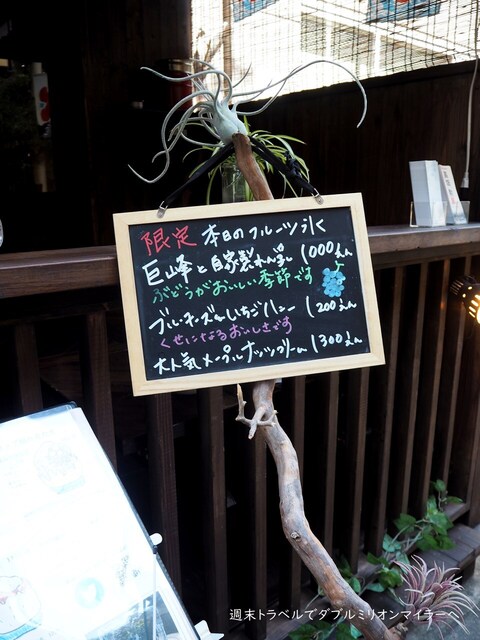 限定 本日のフルーツ氷
巨峰と自家製れん乳 1000えん
ぶどうがおいしい季節です♪
ブルーチーズ&いちごハニー 1200えん
くせになるおいしさです
大人気メープルナッツクリーム 1300えん
週末トラベルでダブルミリオンマイラーへ